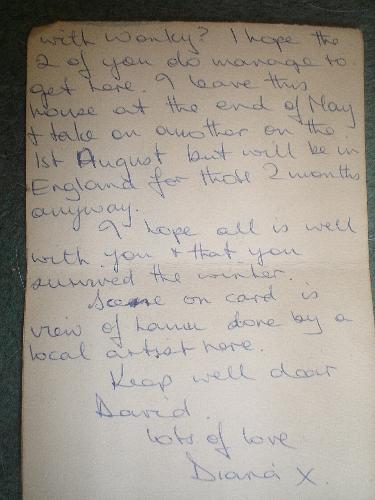 with Wonky? I hope the
2 of you do manage to
get here. I leave this
house at the end of May
+ take on another on the
1st August but will be in
England for those 2 months
anyway.
I hope all is well
with you + that you
survived the winter.
Scene on card is
view of Lamu done by a
local artist here.
Keep well dear
David.
lots of love
Diana X.